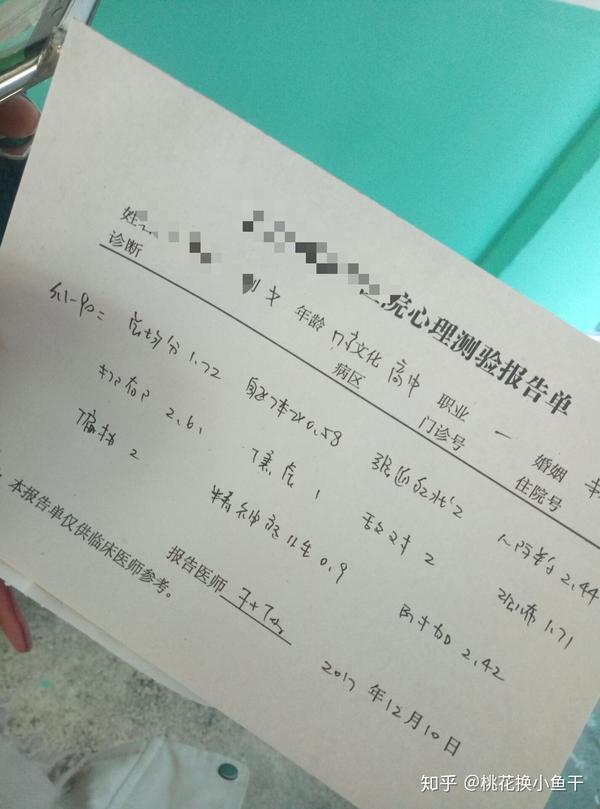 院心理测验报告单
姓 别 女 年龄 文化 高中 职业 一 婚姻
诊断 病区 门诊号 住院号
SCL-90: 总均分 1.72 躯体化 0.58 强迫症状 2 人际 2.44
抑郁 2.61 焦虑 1 敌对 2 恐怖 1.71
偏执 2 精神病性 0.9 附加 2.42
本报告单仅供临床医师参考。
报告医师
2017 年 12 月 10 日
知乎 @桃花换小鱼干